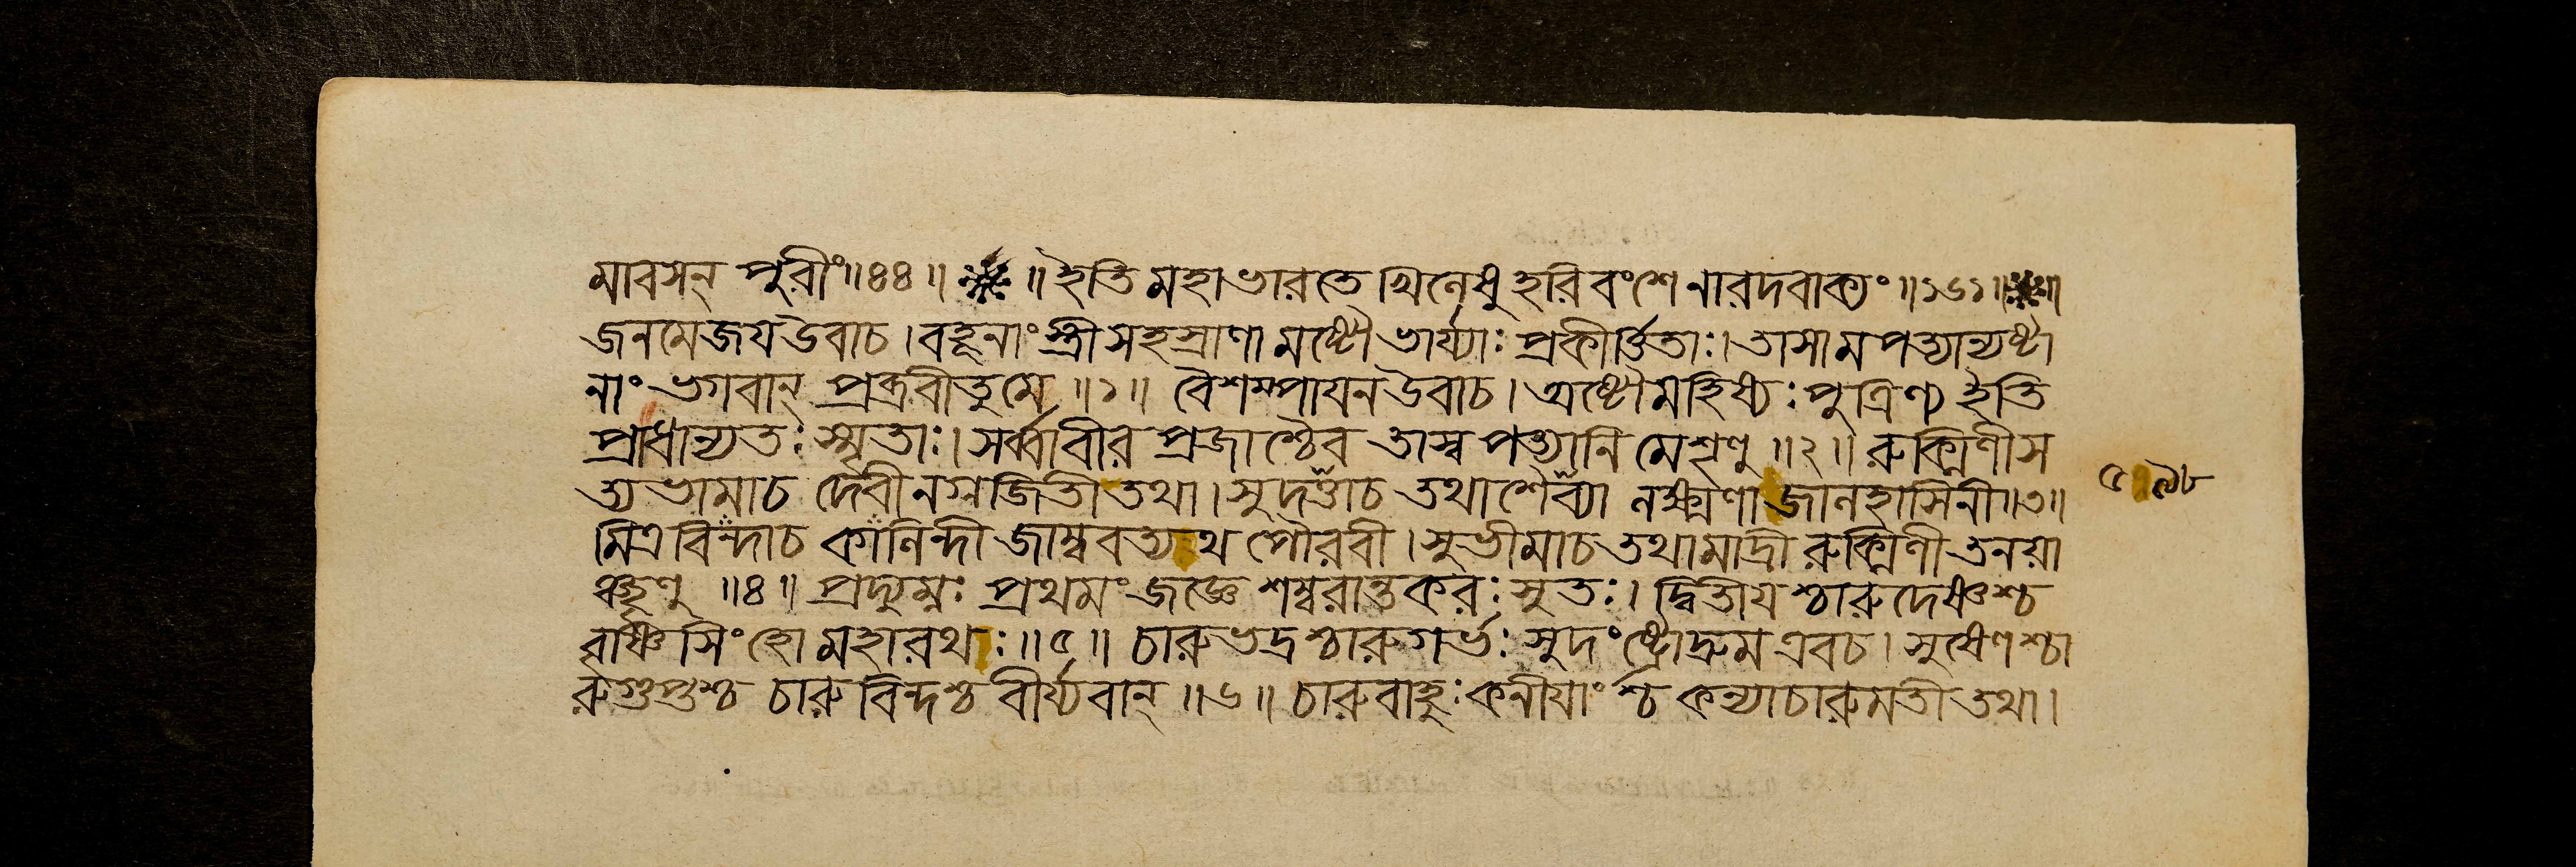 মাবসন্ পুরীং॥৪৪॥ ॥ইতি মহাভারতে খিলেষু হরিবংশে নারদবাক্যং॥১৬১॥
জনমেজয উবাচ।বহূনাং স্ত্রীসহস্রাণামষ্টৌ ভার্য্যাঃ প্রকীর্ত্তিতাঃ।তাসামপত্যান্যষ্টা
নাং ভগবান্ প্রব্রবীতু মে॥১॥ বৈশম্পাযন উবাচ।অষ্টৌ মহিষ্যঃ পুত্রিণ্য ইতি
প্রাধান্যতঃ স্মৃতাঃ।সর্ব্বা বীরপ্রজাশ্চৈব তাস্বপত্যানি মে শৃণু॥২॥ রুক্মিণী স
ত্যভামা চ দেবী নগ্নজিতী তথা।সুদত্তা চ তথা শৈব্যা লক্ষ্মণা জালহাসিনী॥৩॥
মিত্রবিন্দা চ কালিন্দী জাম্ববত্যথ পৌরবী।সুভীমা চ তথা মাদ্রী রুক্মিণীতনয়া
ঞ্ছৃণু॥৪॥ প্রদ্যুম্নঃ প্রথমং জজ্ঞে শম্বরান্তকরঃ সুতঃ।দ্বিতীযশ্চারুদেষ্ণশ্চ
বৃষ্ণিসিংহো মহারথঃ॥৫॥ চারুভদ্রশ্চারুগর্ভঃ সুদংষ্ট্রো দ্রুম এব চ।সুষেণশ্চা
রুগুপ্তশ্চ চারুবিন্দশ্চ বীর্য্যবান্॥৬॥ চারুবাহুঃ কনীযাংশ্চ কন্যা চারুমতী তথা।